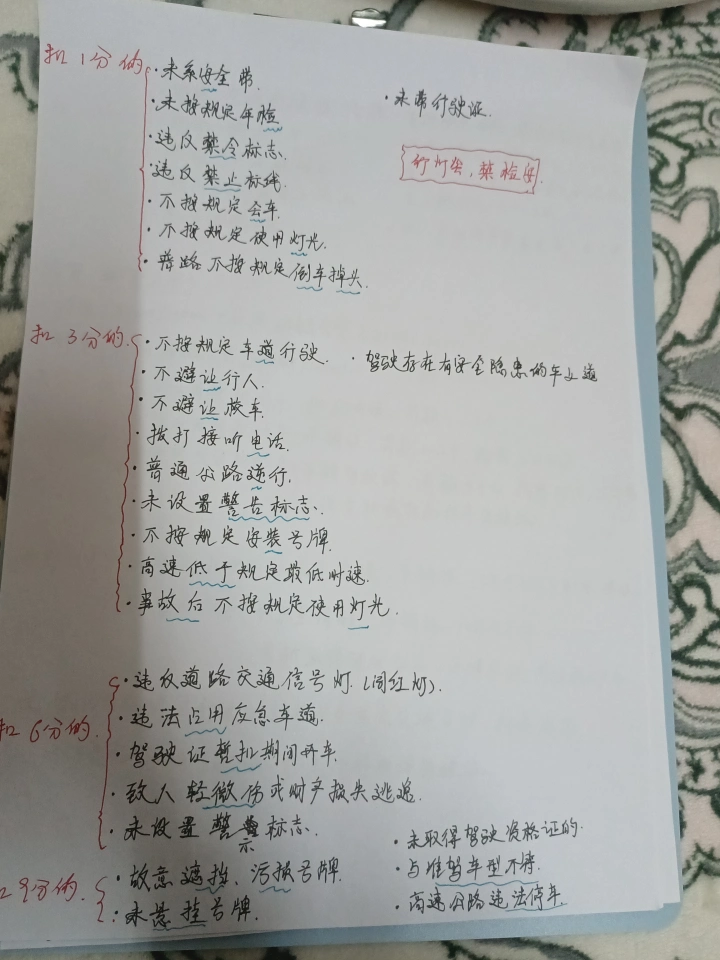 扣1分的
· 未系安全带.
· 未按规定年检
· 违反禁令标志.
· 违反禁止标线.
· 不按规定会车.
· 不按规定使用灯光.
· 普路不按规定倒车掉头.
· 未带行驶证.
行灯类，禁检安.
扣3分的.
· 不按规定车道行驶.
· 不避让行人.
· 不避让校车.
· 拨打接听电话.
· 普通公路逆行.
· 未设置警告标志.
· 不按规定安装号牌.
· 高速低于规定最低时速.
· 事故后不按规定使用灯光.
· 驾驶存在有安全隐患的车上道
扣6分的.
· 违反道路交通信号灯.(闯红灯).
· 违法占用应急车道.
· 驾驶证暂扣期间开车.
· 致人轻微伤或财产损失逃逸.
· 未设置警示标志.
扣9分的.
· 故意遮挡、污损号牌.
· 未悬挂号牌.
· 未取得驾驶资格证的.
· 与准驾车型不符.
· 高速公路违法停车.